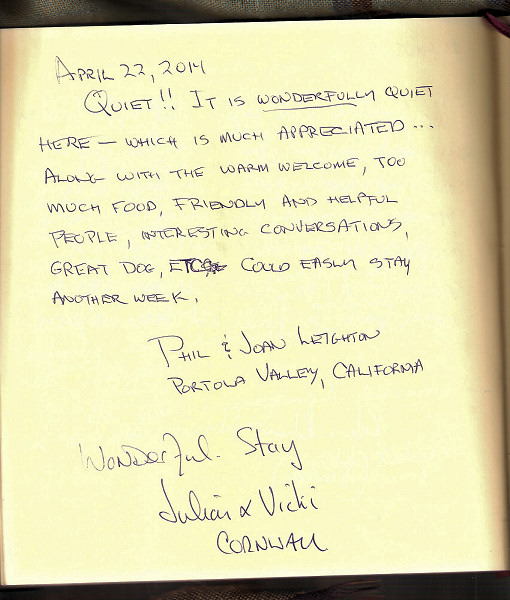 April 22, 2014
Quiet!! It is wonderfully quiet
here — which is much appreciated...
Along with the warm welcome, too
much food, friendly and helpful
people, interesting conversations,
great dog, etc. Could easily stay
another week.
Phil & Joan Leighton
Portola Valley, California
Wonderful. Stay
Julian & Vicki
Cornwall